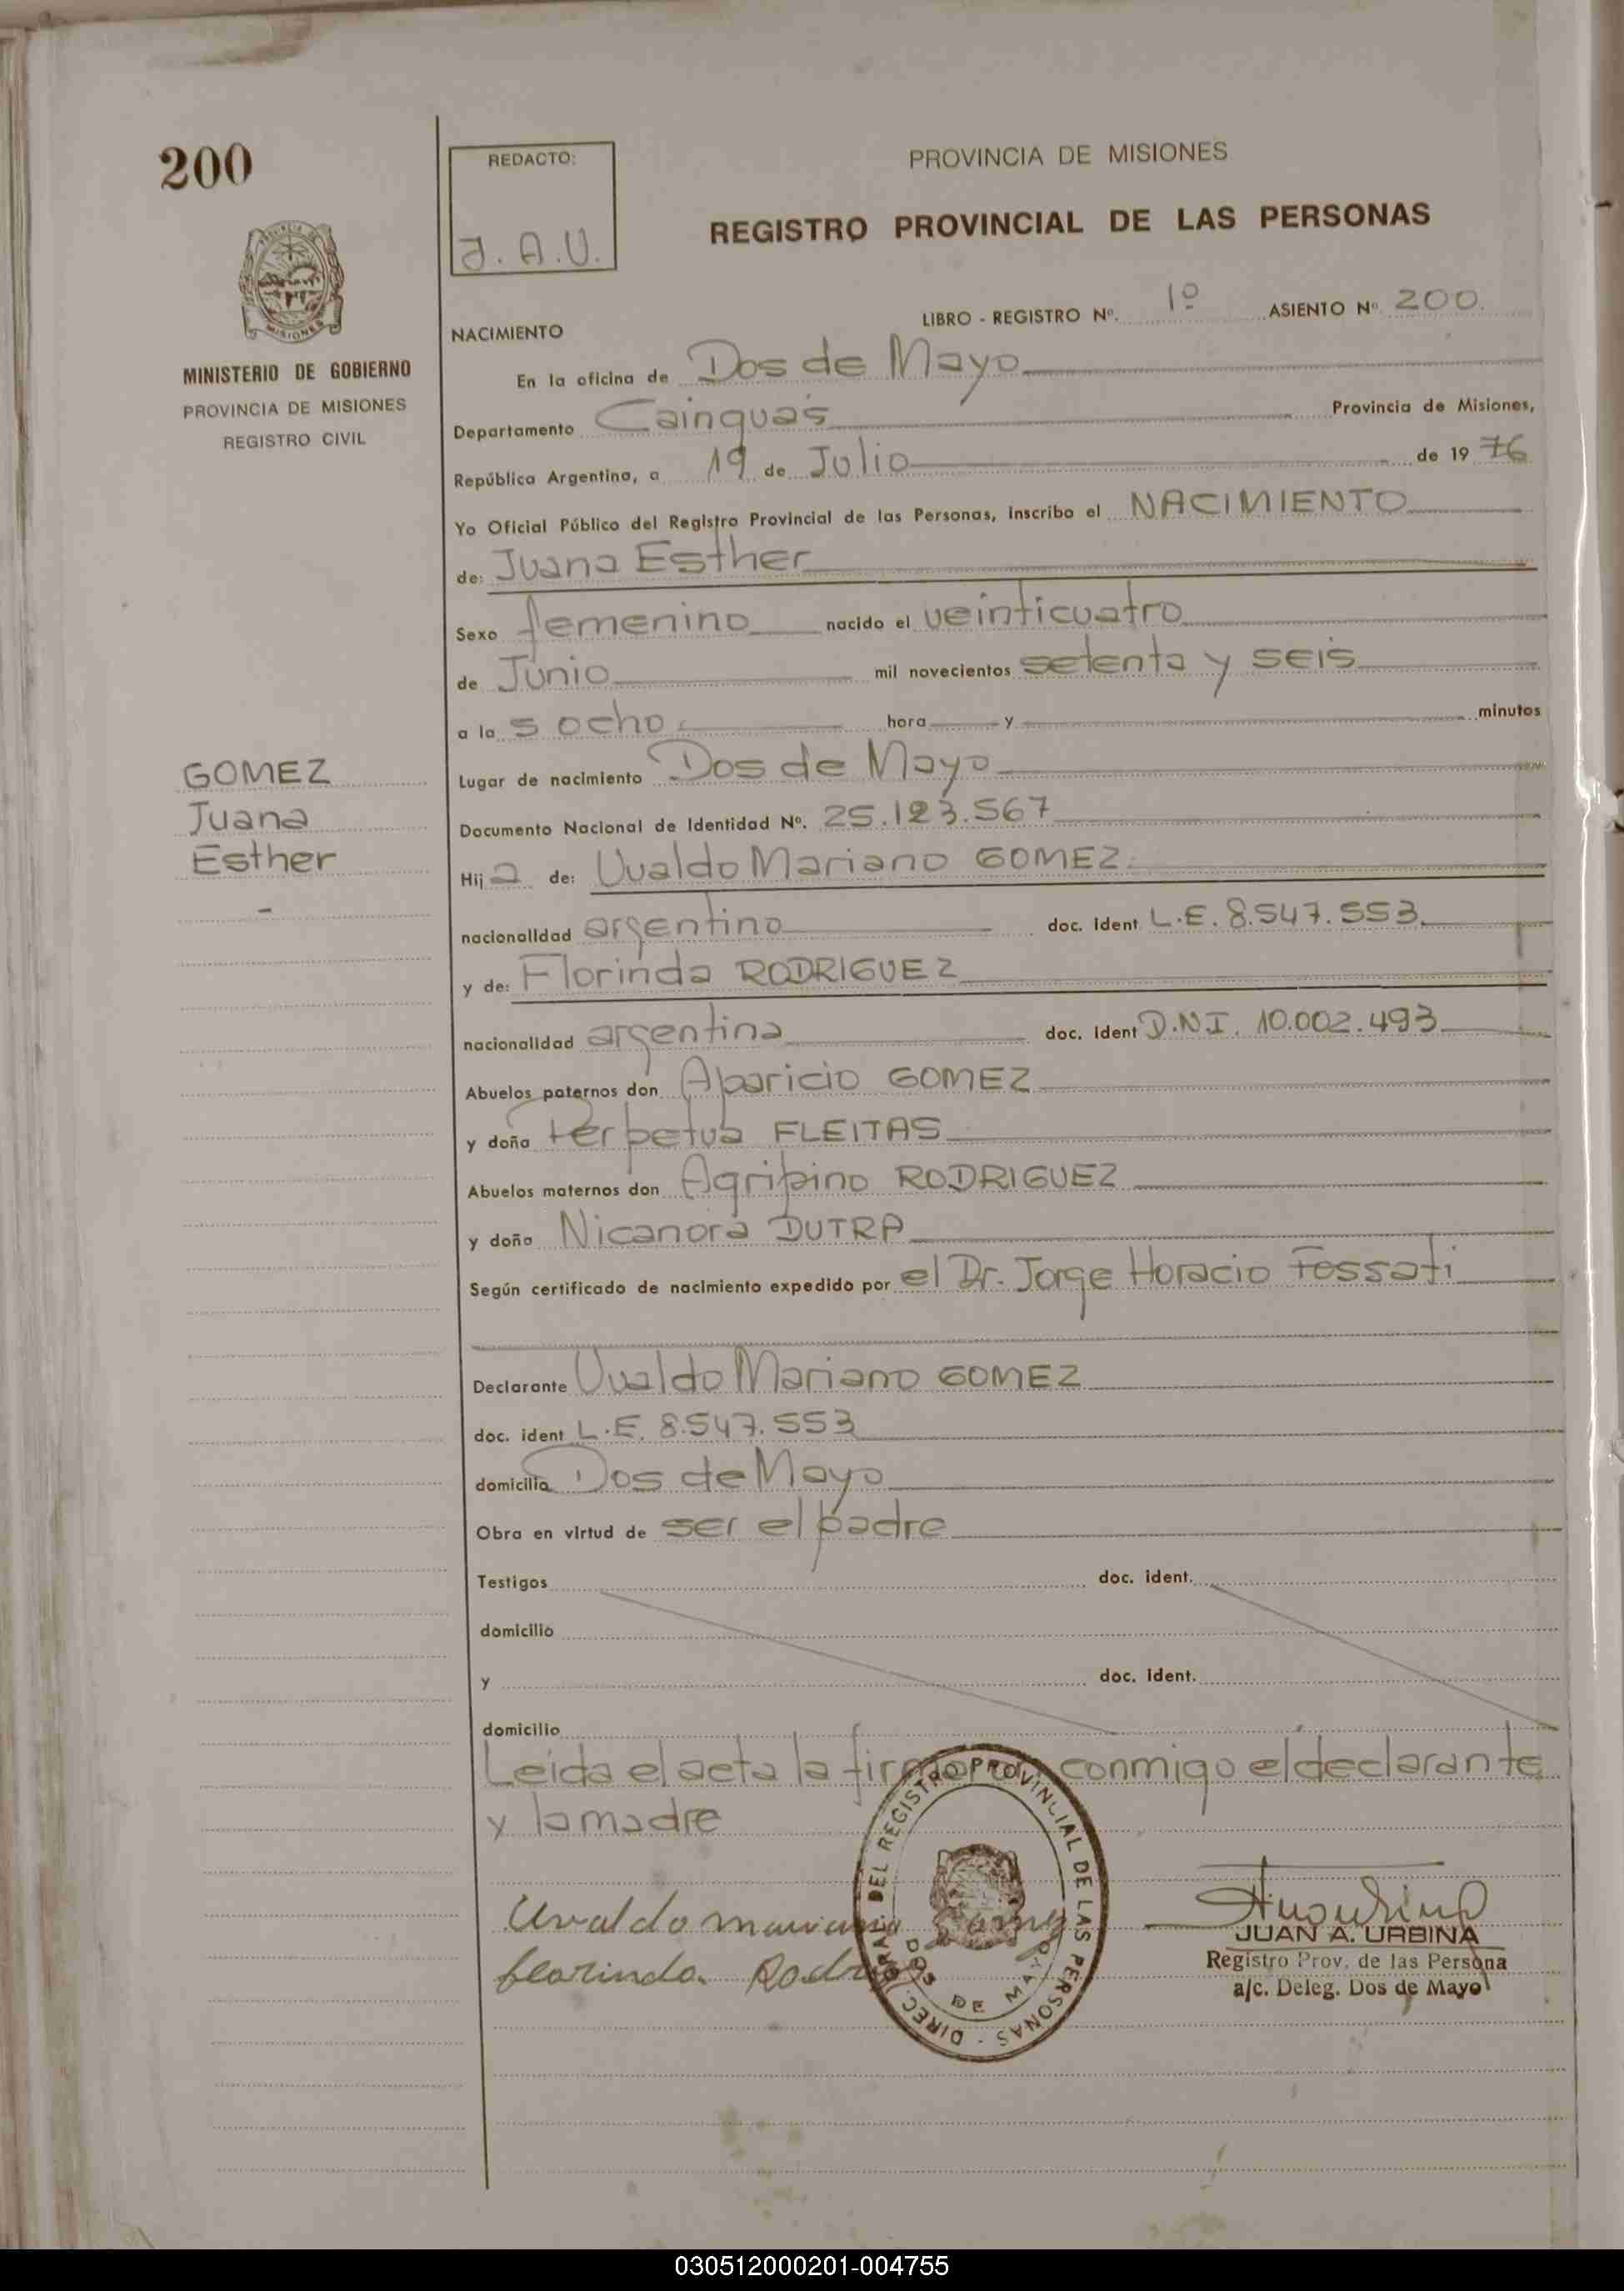 200
PROVINCIA DE
MISIONES
MINISTERIO DE GOBIERNO
PROVINCIA DE MISIONES
REGISTRO CIVIL
GOMEZ
Juana
Esther
REDACTO:
J.A.U.
PROVINCIA DE MISIONES
REGISTRO PROVINCIAL DE LAS PERSONAS
LIBRO - REGISTRO Nº. 1º ASIENTO Nº 200.
NACIMIENTO
En la oficina de Dos de Mayo
Departamento Cainguas Provincia de Misiones,
República Argentina, a 19 de Julio de 1976
Yo Oficial Público del Registro Provincial de las Personas, inscribo el NACIMIENTO
de: Juana Esther
Sexo femenino nacido el veinticuatro
de Junio mil novecientos setenta y seis
a las ocho hora y minutos
Lugar de nacimiento Dos de Mayo
Documento Nacional de Identidad Nº. 25.123.567
Hija de: Uvaldo Mariano GOMEZ
nacionalidad argentino doc. ident L.E. 8.547.553
y de: Florinda RODRIGUEZ
nacionalidad argentina doc. ident D.N.I. 10.002.493
Abuelos paternos don Aparicio GOMEZ
y doña Perpetua FLEITAS
Abuelos maternos don Agripino RODRIGUEZ
y doña Nicanora DUTRA
Según certificado de nacimiento expedido por el Dr. Jorge Horacio Fossati
Declarante Uvaldo Mariano GOMEZ
doc. ident L.E. 8.547.553
domicilio Dos de Mayo
Obra en virtud de ser el padre
Testigos doc. ident.
domicilio
y doc. ident.
domicilio
Leída el acta la firman conmigo el declarante
y la madre
Uvaldo mariano Gomez
florinda Rodri
DIREC. GRAL. DEL REGISTRO PROVINCIAL DE LAS PERSONAS -
DOS DE MAYO
JUAN A. URBINA
Registro Prov. de las Persona
a/c. Deleg. Dos de Mayo
030512000201-004755